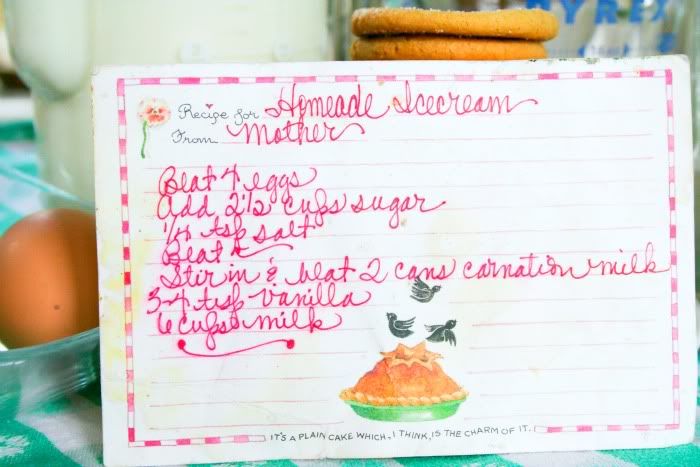 PYREX
Recipe for Homeade Icecream
From Mother
Beat 4 eggs
Add 2 1/2 cups sugar
1/4 tsp salt
Beat
Stir in & beat 2 cans carnation milk
3-4 tsp vanilla
6 cups milk
IT'S A PLAIN CAKE WHICH, I THINK, IS THE CHARM OF IT.